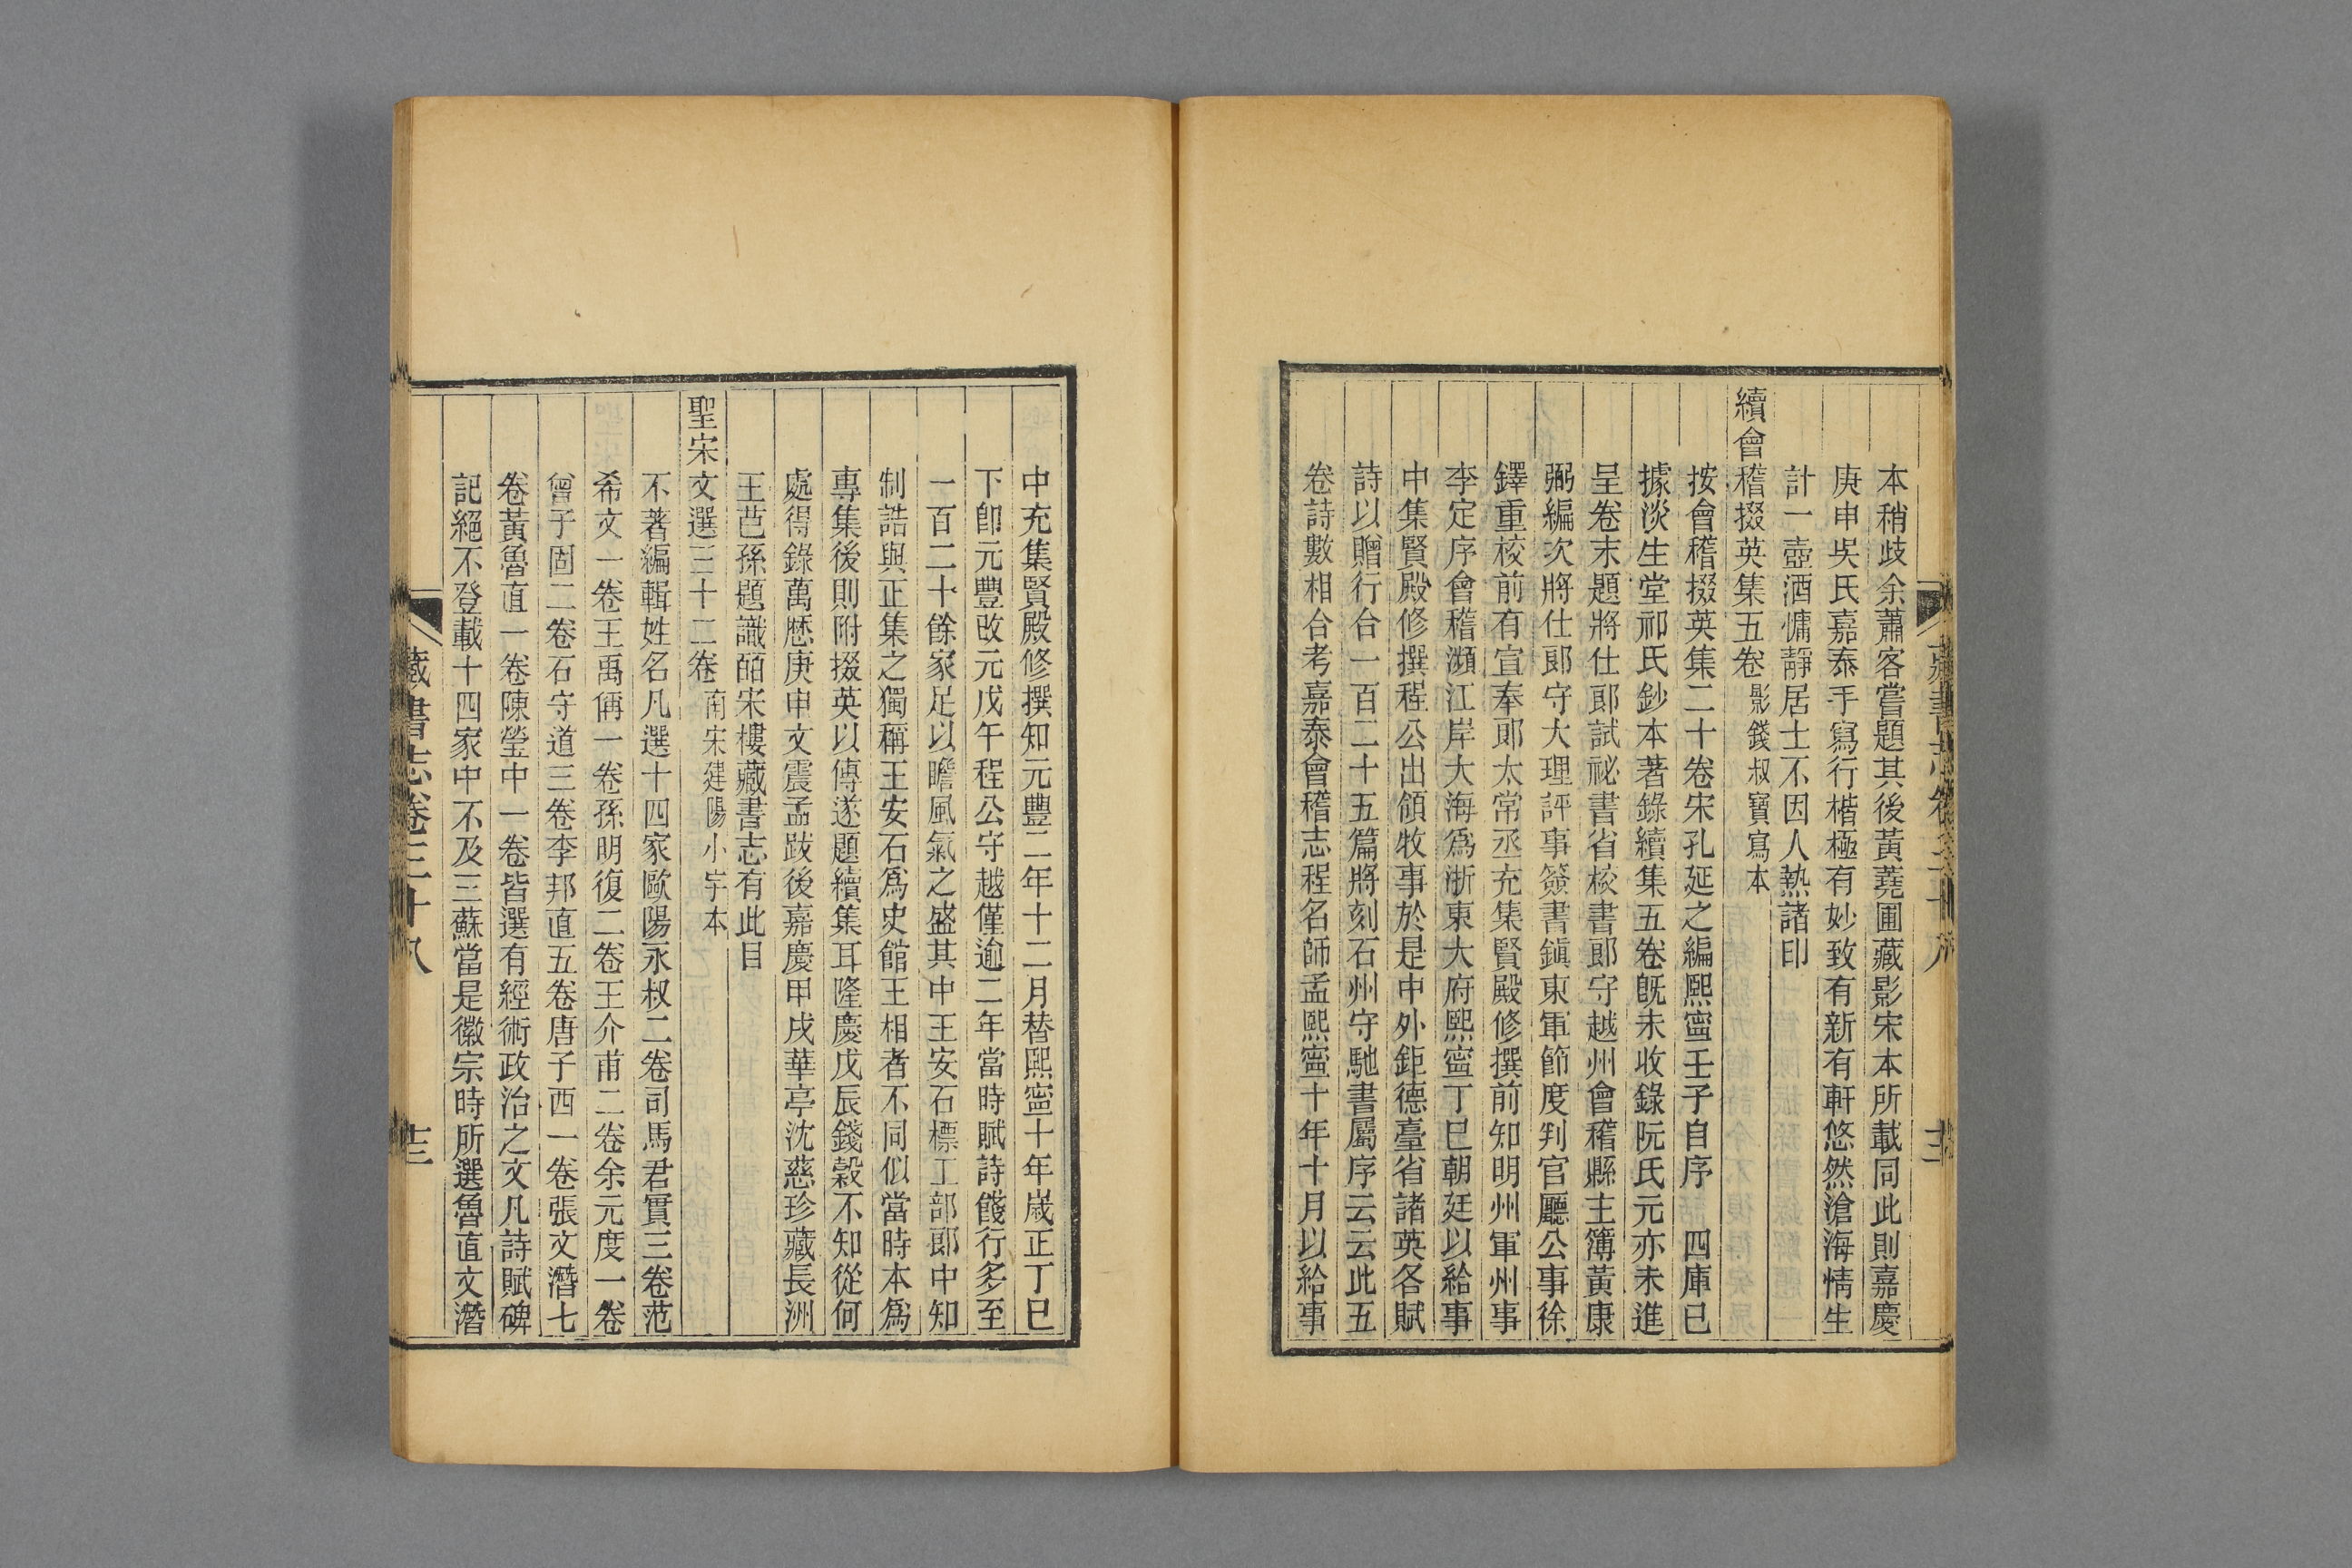 本稍歧余蕭客嘗題其後黃蕘圃藏影宋本所載同此則嘉慶
庚申吳氏嘉泰手寫行楷極有妙致有新有軒悠然滄海情生
計一壺酒慵靜居士不因人熱諸印
續會稽掇英集五卷影錢叔寶寫本
按會稽掇英集二十卷宋孔延之編熙寧壬子自序 四庫已
據淡生堂祁氏鈔本著錄續集五卷旣未收錄阮氏元亦未進
呈卷末題將仕郎試祕書省校書郎守越州會稽縣主簿黃康
弼編次將仕郎守大理評事簽書鎭東軍節度判官廳公事徐
鐸重校前有宣奉郎太常丞充集賢殿修撰前知明州軍州事
李定序會稽瀕江岸大海爲浙東大府熙寧丁巳朝廷以給事
中集賢殿修撰程公出領牧事於是中外鉅德臺省諸英各賦
詩以贈行合一百二十五篇將刻石州守馳書屬序云云此五
卷詩數相合考嘉泰會稽志程名師孟熙寧十年十月以給事
中充集賢殿修撰知元豐二年十二月替熙寧十年歲正丁巳
下卽元豐改元戊午程公守越僅逾二年當時賦詩餞行多至
一百二十餘家足以瞻風氣之盛其中王安石標工部郎中知
制誥與正集之獨稱王安石爲史館王相者不同似當時本爲
專集後則附掇英以傳遂題續集耳隆慶戊辰錢穀不知從何
處得錄萬歷庚申文震孟跋後嘉慶甲戌華亭沈慈珍藏長洲
王芑孫題識皕宋樓藏書志有此目
聖宋文選三十二卷南宋建陽小字本
不著編輯姓名凡選十四家歐陽永叔二卷司馬君實三卷范
希文一卷王禹偁一卷孫明復二卷王介甫二卷余元度一卷
曾子固二卷石守道三卷李邦直五卷唐子西一卷張文潛七
卷黃魯直一卷陳瑩中一卷皆選有經術政治之文凡詩賦碑
記絕不登載十四家中不及三蘇當是徽宗時所選魯直文潛
藏書志卷三十八
十三